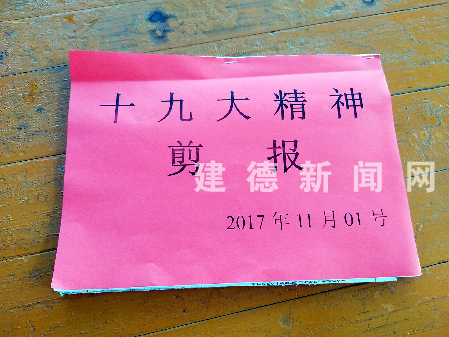 十九大精神
剪报
建德新闻网
2017年11月01号